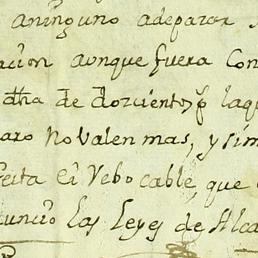 aninguno adeparar
acion aunque fuera Con
dha de dozcientos p laqu
aro no valen mas, y si m
feita è ìrebocable, que
uncio las Leyes de Alca